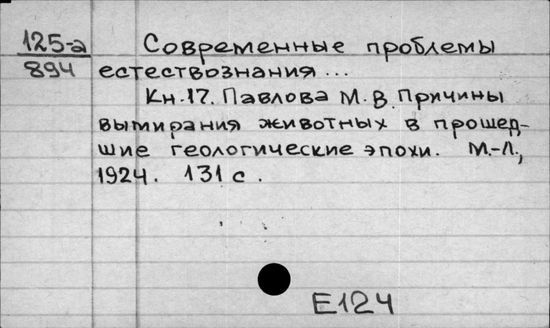 125-а Современные проблемы
894 естествознания...
Кн.17. Павлова М.В. Причины
вымирания животных в прошед-
шие геологические эпохи. М.-Л.,
1924. 131 с.
Е124